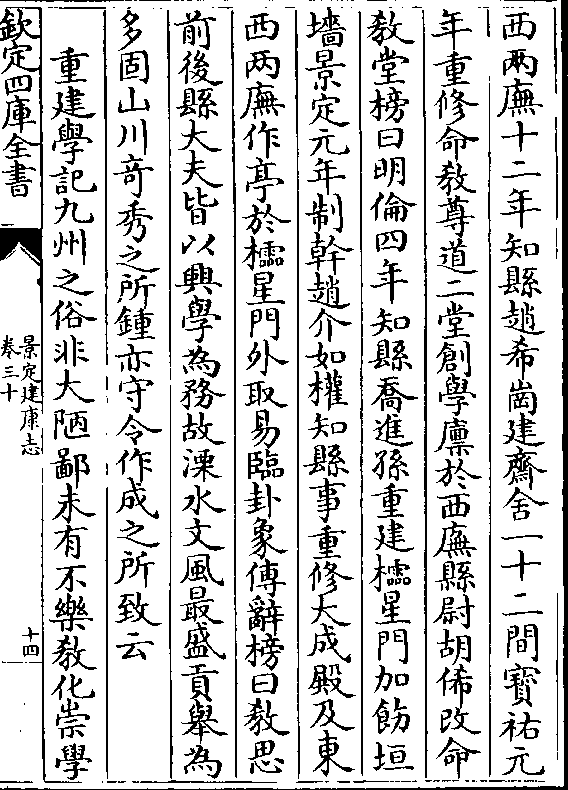 西兩廡十二年知縣趙希崗建齋舍一十二間寳祐元
年重修命教尊道二堂創學廪於西廡縣尉胡俙改命
教堂榜曰明倫四年知縣喬進孫重建櫺星門加飭垣
墻景定元年制幹趙介如權知縣事重修大成殿及東
西兩廡作亭於櫺星門外取易臨卦象傳辭榜曰教思
前後縣大夫皆以興學為務故溧水文風最盛貢舉為
多固山川竒秀之所鍾亦守令作成之所致云
重建學記九州之俗非大陋鄙未有不樂教化崇學
欽定四庫全書
景定建康志
卷三十
十四